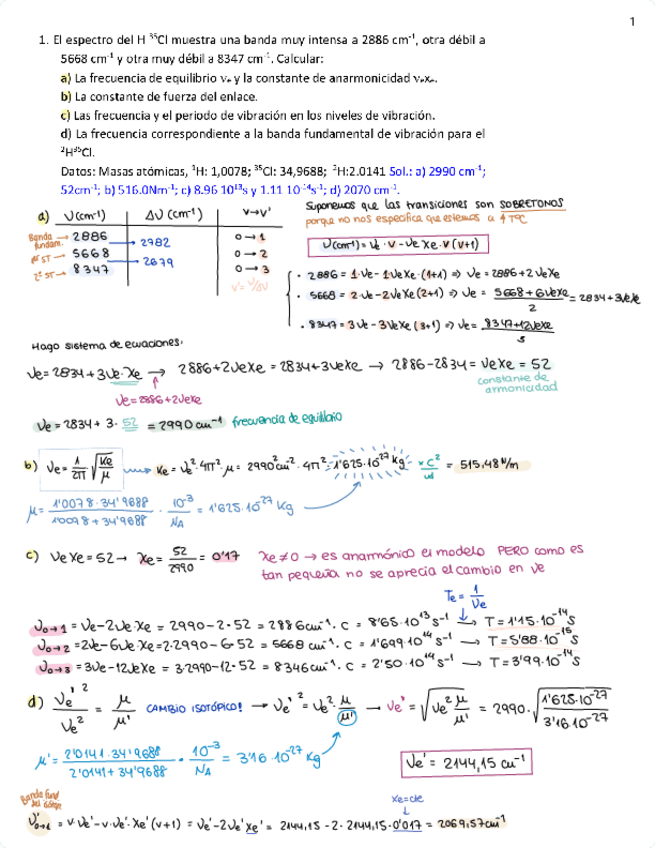 1
1. El espectro del H ³⁵Cl muestra una banda muy intensa a 2886 cm⁻¹, otra débil a
5668 cm⁻¹ y otra muy débil a 8347 cm⁻¹. Calcular:
a) La frecuencia de equilibrio νₑ y la constante de anarmonicidad νₑxₑ.
b) La constante de fuerza del enlace.
c) Las frecuencia y el periodo de vibración en los niveles de vibración.
d) La frecuencia correspondiente a la banda fundamental de vibración para el
²H³⁵Cl.
Datos: Masas atómicas, ¹H: 1,0078; ³⁵Cl: 34,9688; ²H:2.0141 Sol.: a) 2990 cm⁻¹;
52cm⁻¹; b) 516.0Nm⁻¹; c) 8.96 10¹³s y 1.11 10⁻¹⁴s⁻¹; d) 2070 cm⁻¹.
Suponemos que las transiciones son SOBRETONOS
porque no nos especifica que estemos a ↑TºC
a) ν(cm⁻¹) Δν(cm⁻¹) v→v'
Banda fundam. → 2886 → 2782 0→1
1er ST → 5668 → 2679 0→2
2º ST → 8347 0→3
ν(cm⁻¹) = νe · v - νe xe · v(v+1)
· 2886 = 1·νe - 1νexe·(1+1) ⇒ νe = 2886+2νexe
· 5668 = 2·νe - 2νexe(2+1) ⇒ νe = 5668+6νexe / 2 = 2834+3νexe
· 8347 = 3νe - 3νexe (3+1) ⇒ νe = 8347+12νexe / 3
Hago sistema de ecuaciones:
νe = 2834 + 3νe·xe → 2886+2νexe = 2834+3νexe → 2886-2834 = νexe = 52
νe = 2886+2νexe
constante de
armonicidad
νe = 2834 + 3·52 = 2990 cm⁻¹ frecuencia de equilibrio
b) νe = 1/2π √(Ke/μ) → Ke = νe²·4π²·μ = 2990²cm⁻²·4π²·1'625·10⁻²⁷kg · c² = 515,48 N/m
μ = 1'0078·34'9688 / 1'0078+34'9688 · 10⁻³/NA = 1'625·10⁻²⁷ Kg
c) νexe = 52 → xe = 52/2990 = 0'17 xe≠0 → es anarmónico el modelo PERO como es
tan pequeña no se aprecia el cambio en νe
Te = 1/νe
ν0→1 = νe-2νe·xe = 2990-2·52 = 2886cm⁻¹·c = 8'65·10¹³s⁻¹ → T = 1'15·10⁻¹⁴s
ν0→2 = 2νe-6νe·xe = 2·2990-6·52 = 5668 cm⁻¹·c = 1'699·10¹⁴s⁻¹ → T = 5'88·10⁻¹⁵s
ν0→3 = 3νe-12νexe = 3·2990-12·52 = 8346cm⁻¹·c = 2'50·10¹⁴s⁻¹ → T = 3'99·10⁻¹⁴s
d) νe'²/νe² = μ/μ' CAMBIO ISOTÓPICO! → νe'² = νe²·μ/μ' → νe' = √(νe² μ/μ') = 2990·√(1'625·10⁻²⁷/3'16·10⁻²⁷)
μ' = 2'0141·34'9688 / 2'0141+34'9688 · 10⁻³/NA = 3'16·10⁻²⁷ Kg
νe' = 2144,15 cm⁻¹
Banda fund
del isótopo
xe=cte
ν'0→1 = v·νe'-v·νe'·xe'(v+1) = νe'-2νe'xe' = 2144,15-2·2144,15·0'017 = 2069,57cm⁻¹